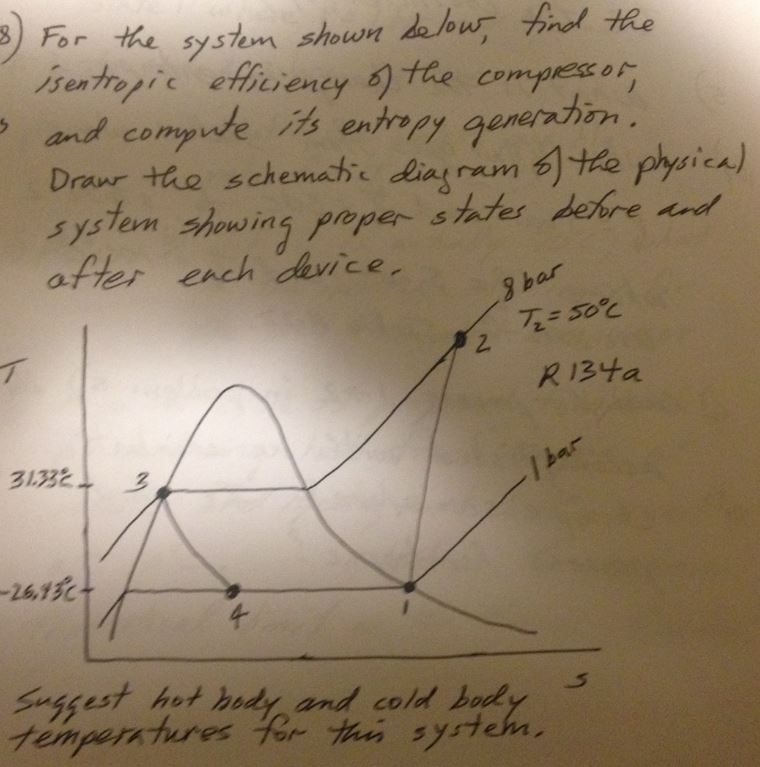 8) For the system shown below, find the
isentropic efficiency of the compressor,
and compute its entropy generation.
Draw the schematic diagram of the physical
system showing proper states before and
after each device.
8 bar
T₂ = 50°C
2
R134a
T
1 bar
31.33°C
3
-26.43°C
4
1
s
Suggest hot body and cold body
temperatures for this system.